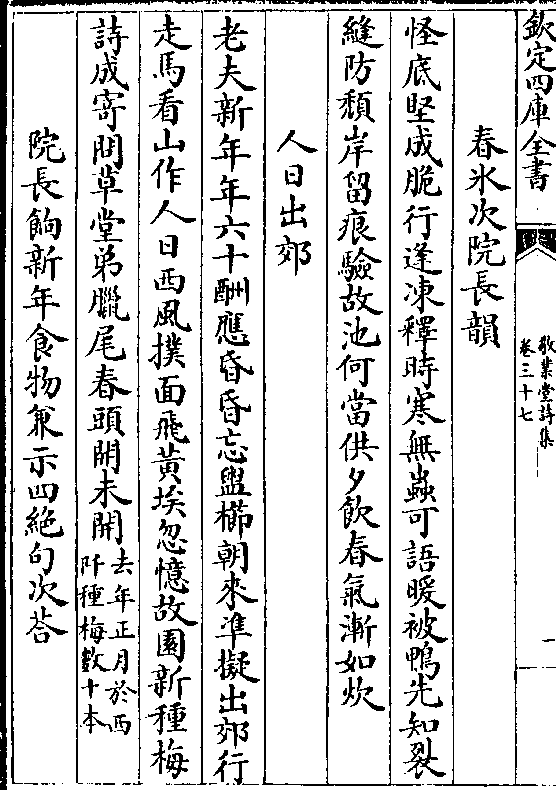 欽定四庫全書
敬業堂詩集
卷三十七
一
春氷次院長韻
怪底堅成脆行逢凍釋時寒無蟲可語暖被鴨先知裂
縫防頽岸留痕驗故池何當供夕飲春氣漸如炊
人日出郊
老夫新年年六十酬應昏昏忘盥櫛朝來準擬出郊行
走馬看山作人日西風撲面飛黄埃忽憶故園新種梅
詩成寄問草堂弟臘尾春頭開未開去年正月於西
阡種梅數十本
院長餉新年食物兼示四絶句次荅